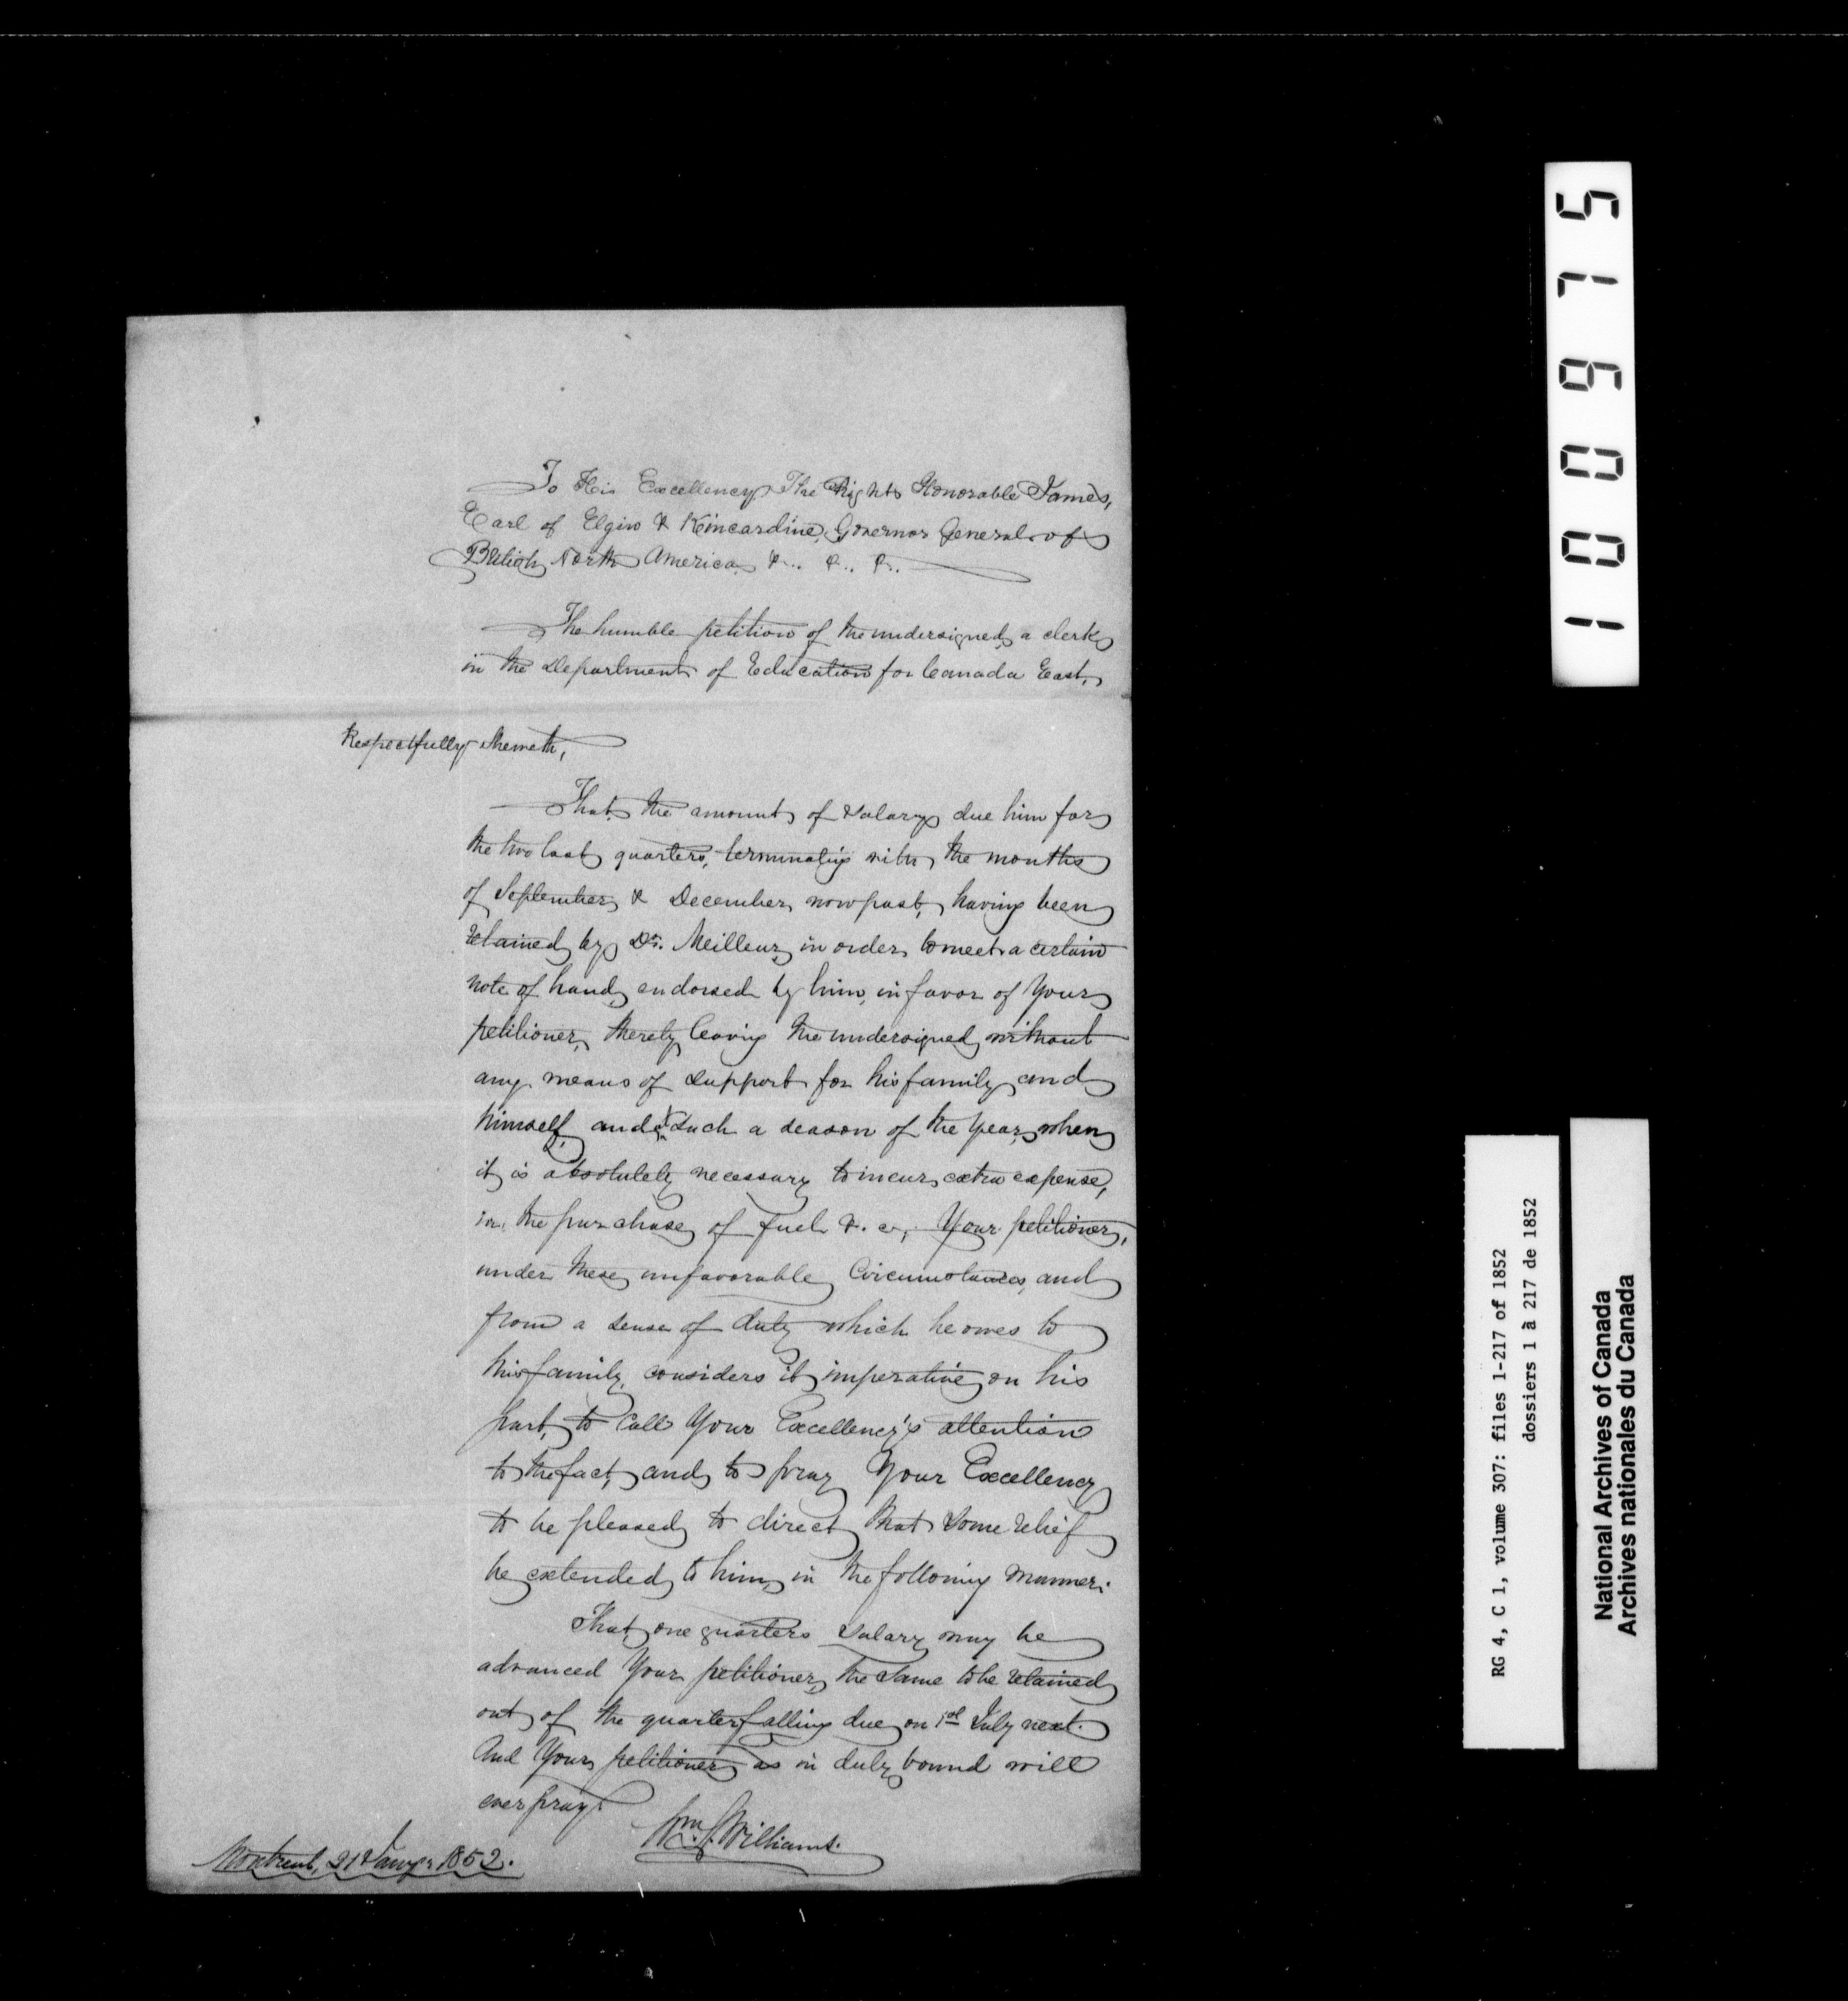 To His Excellency The Right Honorable James,
Earl of Elgin & Kincardine, Governor General of
British North America &.. &.. &..
The humble petition of the undersigned, a clerk
in the Department of Education for Canada East,
Respectfully Sheweth,
That the amount of Salary due him for
the two last quarters, terminating with the months
of September & December now past, having been
retained by Dr. Meilleur, in order to meet a certain
note of hand, endorsed by him, in favor of Your
petitioner, thereby leaving the undersigned, without
any means of support for his family and
himself, and at such a season of the year, when
it is absolutely necessary to incur extra expense,
in the purchase of fuel &.c., Your petitioner,
under these unfavorable Circumstances, and
from a sense of duty which he owes to
his family, considers it imperative on his
part, to call Your Excellency's attention
to the fact, and to pray Your Excellency
to be pleased to direct that some relief
be extended to him, in the following manner:
That one quarters Salary may be
advanced Your petitioner, the same to be retained
out of the quarter falling due on 1st July next.
And Your petitioner as in duty bound will
ever pray.
Wm. Williams.
Montreal, 21 Jany. 1852.
1 0 0 6 7 5
RG 4, C 1, volume 307: files 1-217 of 1852
dossiers 1 à 217 de 1852
National Archives of Canada
Archives nationales du Canada